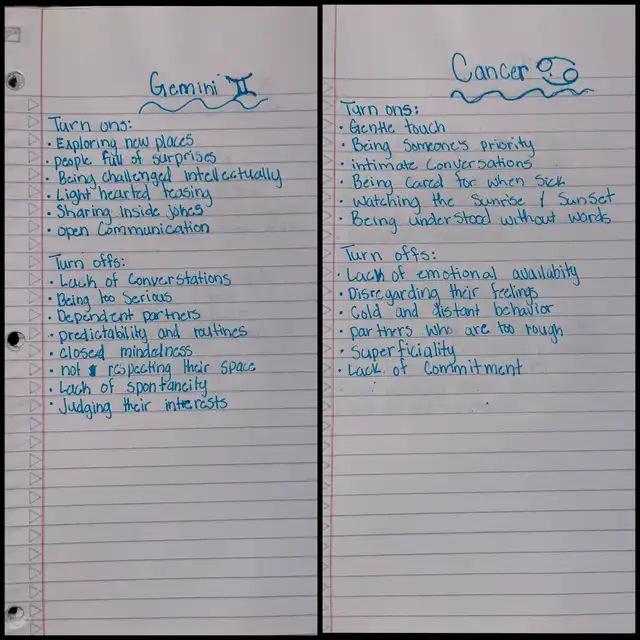 Gemini ♊
Turn ons:
• Exploring new places
• people full of surprises
• Being challenged Intellectually
• Light hearted teasing
• Sharing Inside jokes
• open Communication
Turn offs:
• Lack of Converstations
• Being too Serious
• Dependent partners
• predictability and routines
• closed mindedness
• not respecting their space
• Lack of spontaneity
• Judging their interests
Cancer ♋
Turn ons:
• Gentle touch
• Being Someone's priority
• intimate Conversations
• Being Cared for when Sick
• watching the Sunrise / Sunset
• Being understood without words
Turn offs:
• Lack of emotional availabity
• Disregarding their feelings
• Cold and distant behavior
• partners who are too rough
• Superficiality
• Lack of Commitment